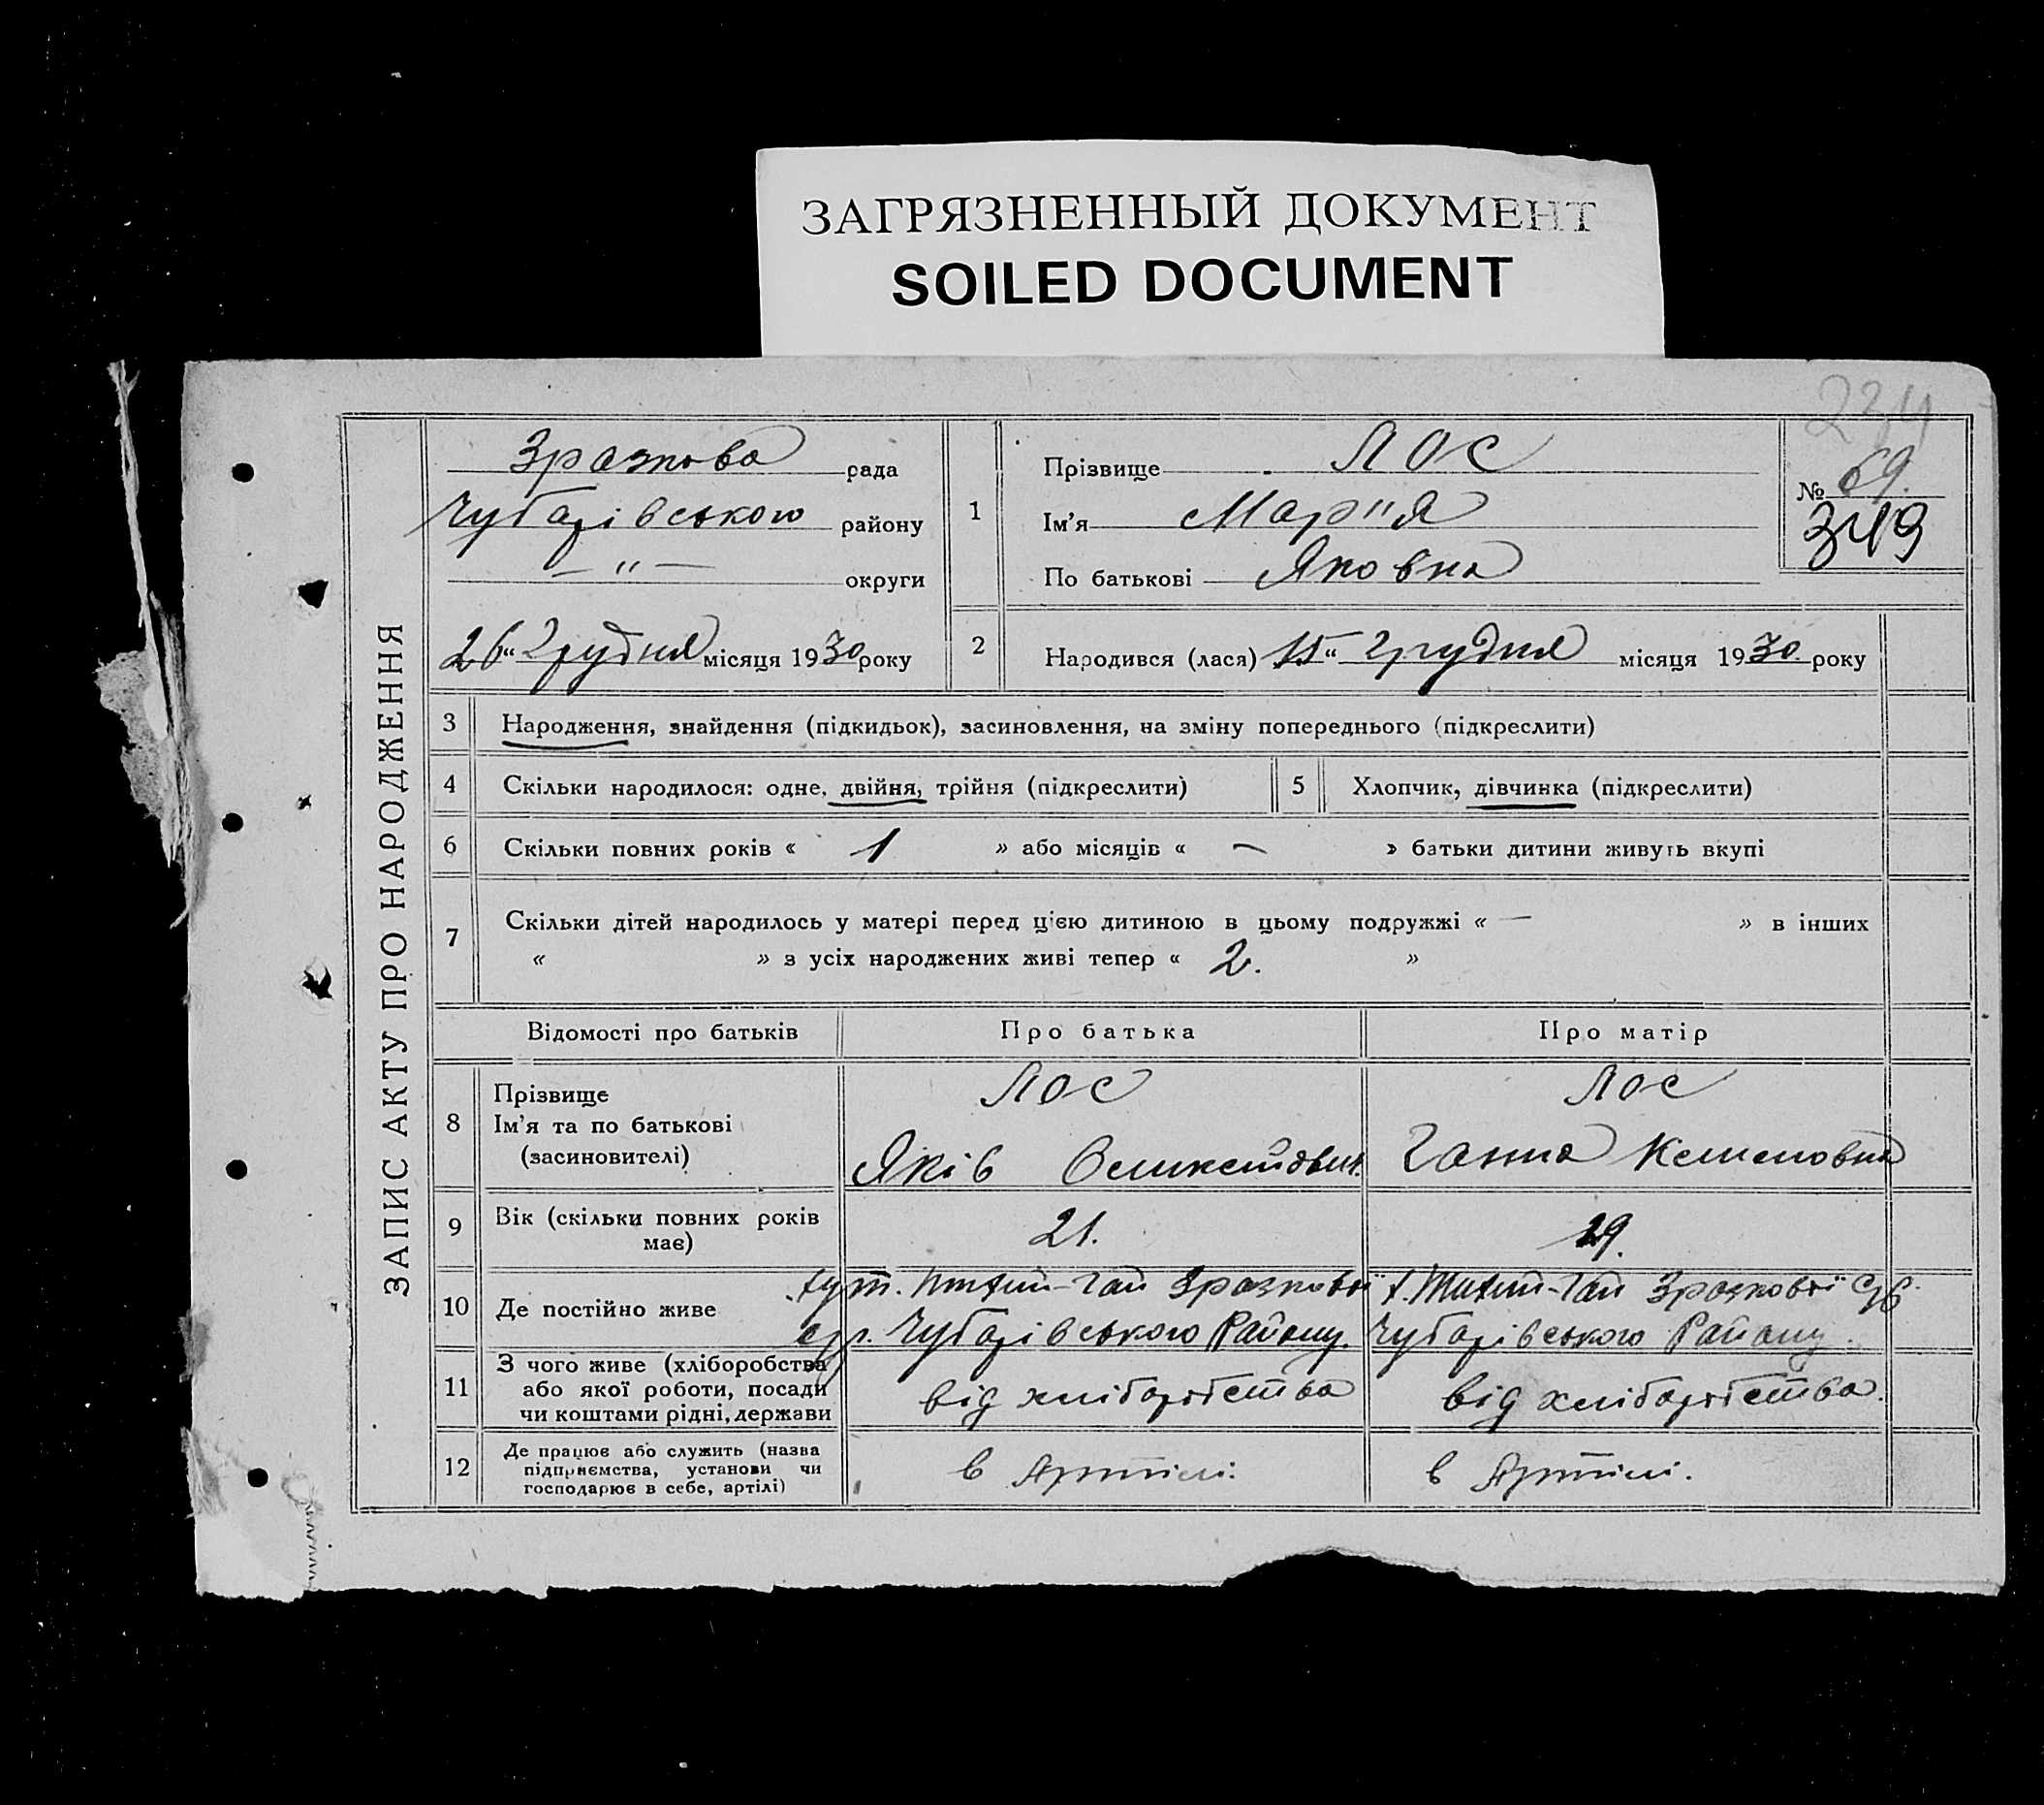 ЗАГРЯЗНЕННЫЙ ДОКУМЕНТ
SOILED DOCUMENT
ЗАПИС АКТУ ПРО НАРОДЖЕННЯ
Зразкова рада
Чубарівського району
— " — округи
26 " Грудня місяця 1930 року
1
Прізвище ЛОС
Ім'я Мар"я
По батькові Яковна
№ 69.
349
2 Народився (лася) 15 " Грудня місяця 1930 року
3 Народження, знайдення (підкидьок), засиновлення, на зміну попереднього (підкреслити)
4 Скільки народилося: одне, двійня, трійня (підкреслити) 5 Хлопчик, дівчинка (підкреслити)
6 Скільки повних років « 1 » або місяців « — » батьки дитини живуть вкупі
7 Скільки дітей народилось у матері перед цією дитиною в цьому подружжі « — » в інших
« » з усіх народжених живі тепер « 2. »
Відомості про батьків Про батька Про матір
8 Прізвище
Ім'я та по батькові
(засиновителі)
Лос
Яків
Лос
Ганна
9 Вік (скільки повних років
має)
21.
19.
10 Де постійно живе
хут. Зразкової
с/р. Чубарівського Району.
х. Зразкової
Чубарівського Району.
11 З чого живе (хліборобства
або якої роботи, посади
чи коштами рідні, держави
від хліборобства
від хліборобства.
12 Де працює або служить (назва
підприємства, установи чи
господарює в себе, артілі)
в Артілі.
в Артілі.